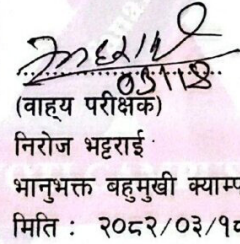 03/18
(वाह्य परीक्षक)
निरोज भट्टराई
भानुभक्त बहुमुखी क्याम्प
मिति : २०८२/०३/१८